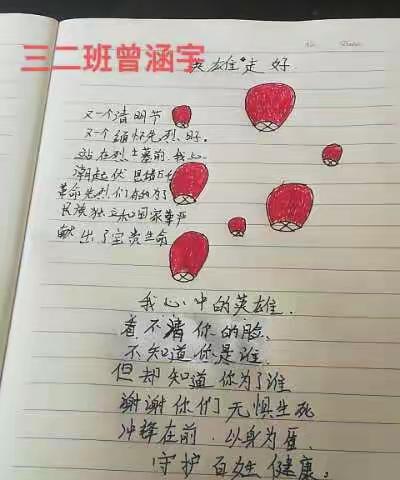 三二班曾涵宇
英雄走好
No.
Date
又一个清明节
又一个缅怀先烈日.
站在烈士墓前,我心
潮起伏 思绪万千
革命先烈们 为了
民族独立和国家尊严
献出了宝贵生命
我心中的英雄.
看不清你的脸,
不知道你是谁
但却知道你为了谁
谢谢你们无惧生死
冲锋在前,以身为盾,
守护百姓健康。